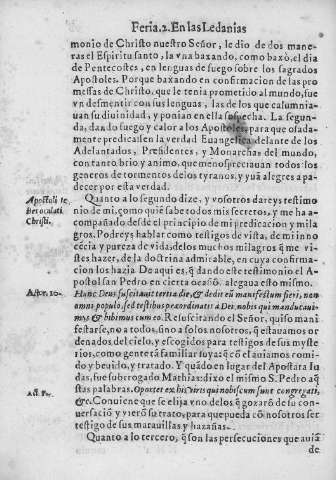 Feria.2. En las Ledanias
monio de Christo nuestro Señor, le dio de dos mane-
ras el Espiritu santo, la vna baxando, como baxò, el dia
de Pentecostes, en lenguas de fuego sobre los sagrados
Apostoles. Porque baxando en confirmacion de las pro
messas de Christo, que le tenia prometido al mundo, fue
vn desmentir con sus lenguas, las de los que calumnia-
uan su diuinidad, y ponian en ella sospecha. La segun-
da, dando fuego y calor a los Apostoles, para que osada-
mente predicassen la verdad Euangelica, delante de los
Adelantados, Presidentes, y Monarchas del mundo,
con tanto brio y animo, que menospreciauan todos los
generos de tormentos de los tyranos, y yuã alegres a pa-
decer por esta verdad.
Apostoli te
stes oculati
Christi.
Quanto a lo segundo dize, y vosotros dareys testimo
nio de mi, como quiē sabe todos mis secretos, y me ha a-
compañado desde el principio de mi predicacion y mila
gros. Podreys hablar como testigos de vista, de mi inno
cēcia y pureza de vida, de los muchos milagros q̃ me vi-
stes hazer, de la doctrina admirable, en cuya confirma-
cion los hazia. De aqui es, q̃ dando este testimonio el A-
postol san Pedro en cierta ocasiõ, alegaua esto mismo.
Actor. 10.
Hunc Deus suscitauit tertia die, & dedit eũ manifestum fieri, non
omni populo, sed testibus præordinatis a Deo, nobis qui manducaui-
mus & bibimus cum eo. Resuscitando el Señor, quiso mani
festarse, no a todos, sino a solos nosotros, q̃ estauamos or
denados del cielo, y escogidos para testigos de sus myste
rios, como gente tã familiar suya: q̃ cõ el auiamos comi-
do y beuido, y tratado. Y quãdo en lugar del Apostata Iu
das, fue subrogado Mathias: dixo el mismo S. Pedro aq̃-
Act. Pri.
stas palabras. Oportet ex his viris qui nobiscum sunt congregati,
&c. Conuiene que se elija vno de los q̃ gozarõ de su con-
uersaciõ y vierõ su trato, para que pueda cõ nosotros ser
testigo de sus marauillas y hazañas.
Quanto a lo tercero, q̃ son las persecuciones que auiã
de